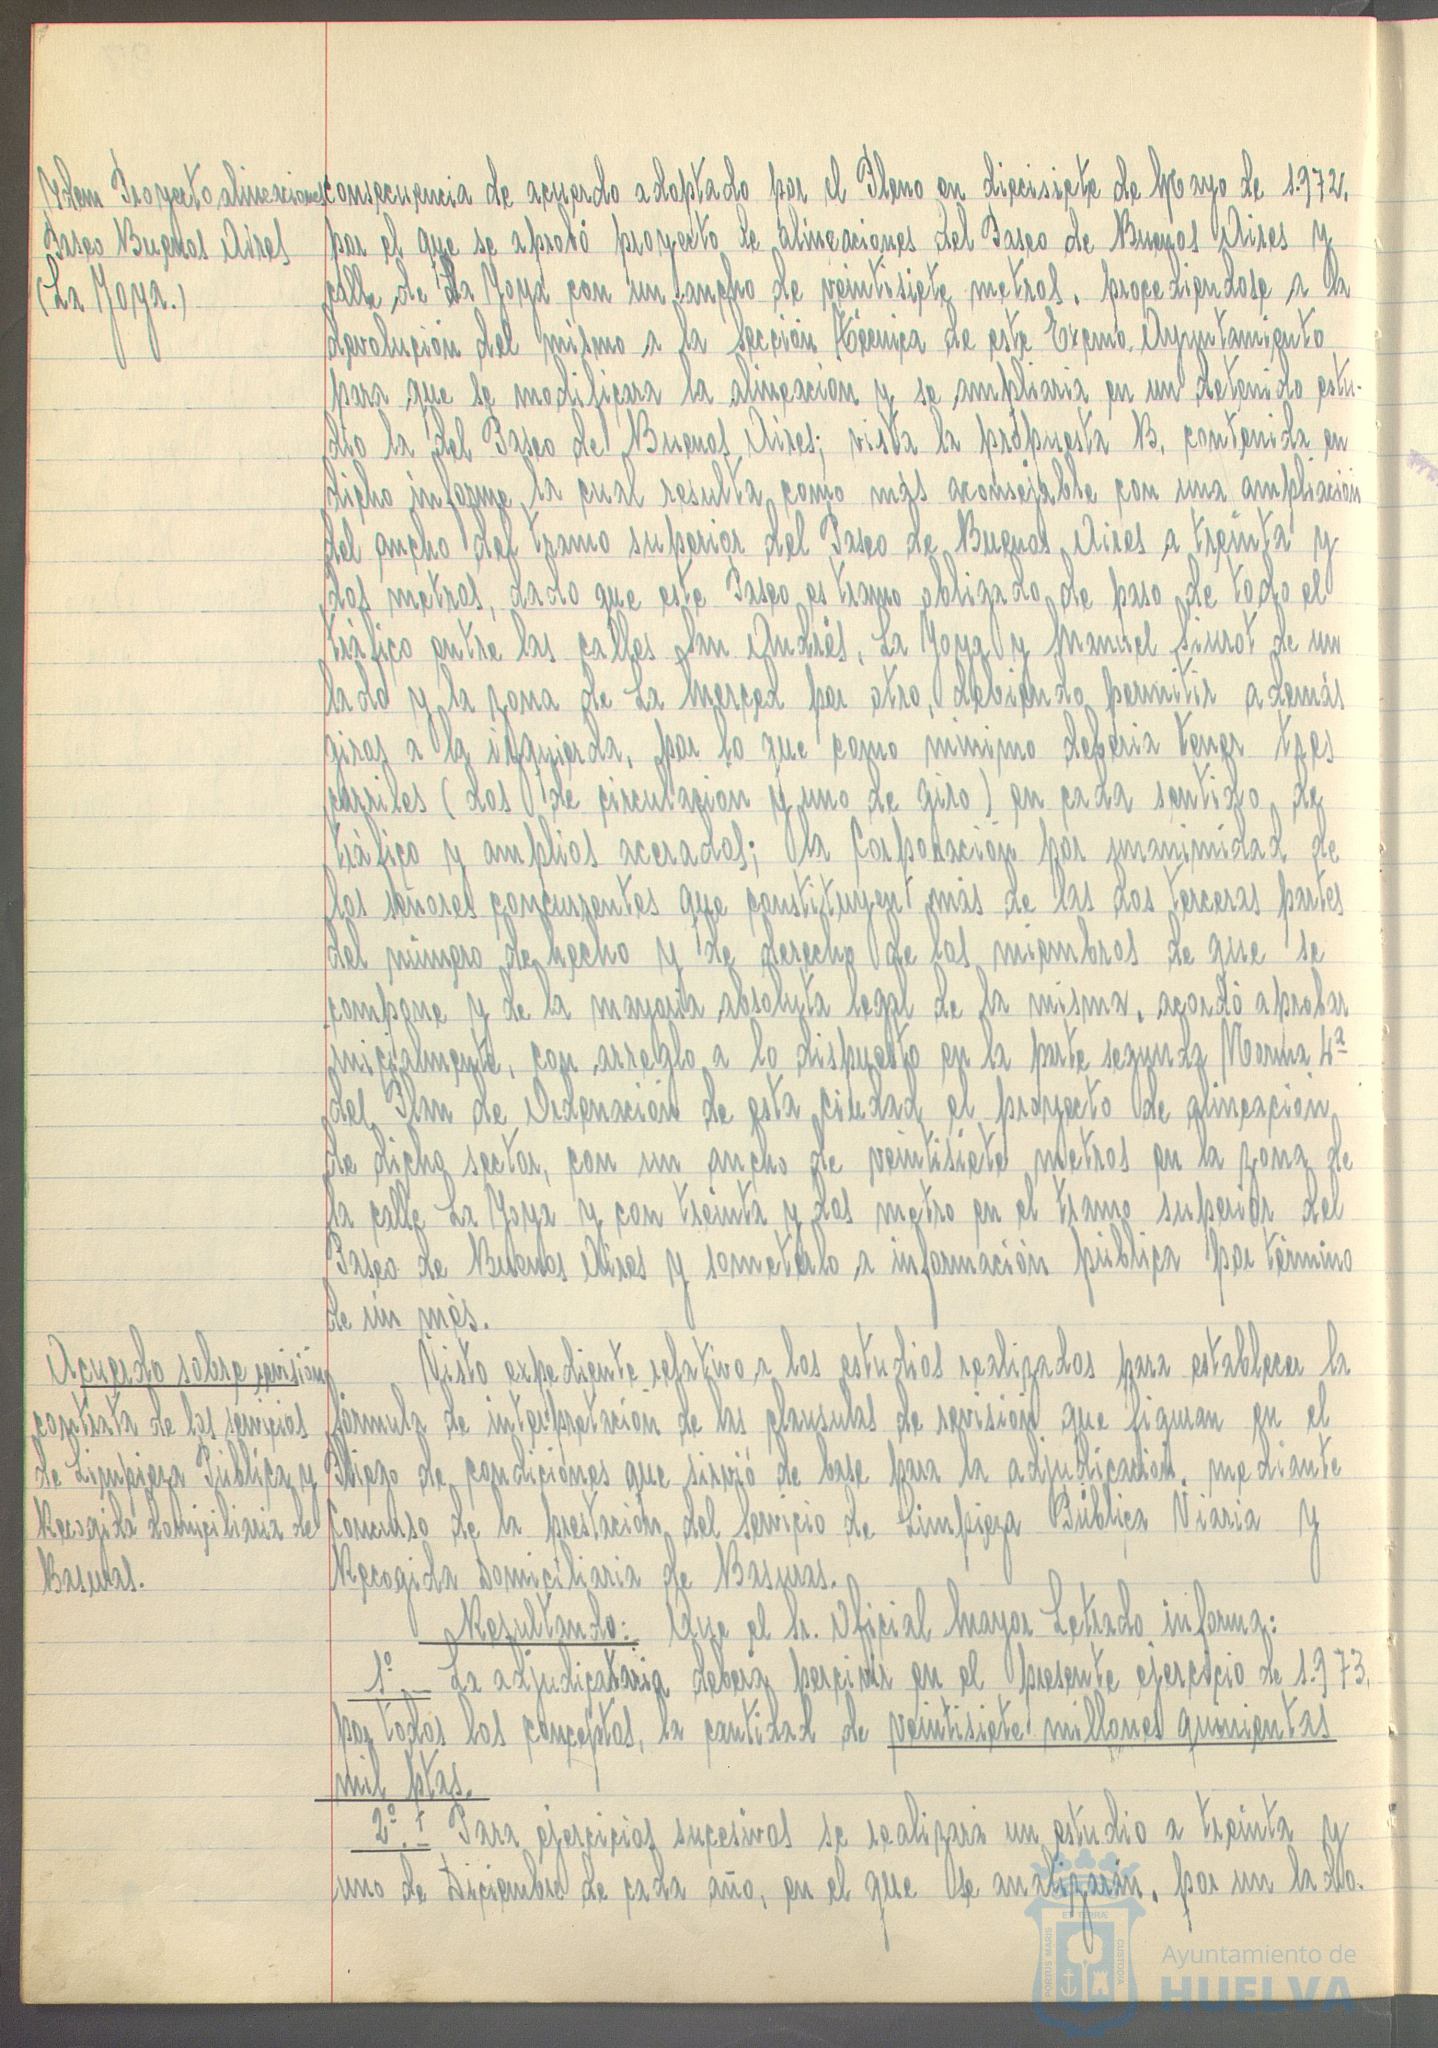 Idem Proyecto alineaciones
Paseo Buenos Aires
(La Joya.)
consecuencia de acuerdo adoptado por el Pleno en diecisiete de Mayo de 1.972,
por el que se aprobó proyecto de alineaciones del Paseo de Buenos Aires y
calle de La Joya con un ancho de veintisiete metros, procediendose a la
devolución del mismo a la Sección Técnica de este Excmo. Ayuntamiento
para que se modificara la alineación y se ampliaria en un detenido estu-
dio la del Paseo del Buenos Aires; vista la propuesta B, contenida en
dicho informe, la cual resulta como más aconsejable con una ampliación
del ancho del tramo superior del Paseo de Buenos Aires a treinta y
dos metros, dado que este Paseo es tramo obligado de paso de todo el
tráfico entre las calles San Andrés, La Joya y Manuel Siurot de un
lado y la zona de La Merced por otro, debiendo permitir además
giros a la izquierda, por lo que como minimo deberia tener tres
carriles (dos de circulacion y uno de giro) en cada sentido de
tráfico y amplios acerados; la Corporación por unanimidad de
los señores concurrentes que constituyen más de las dos terceras partes
del número de hecho y de derecho de los miembros de que se
compone y de la mayoria absoluta legal de la misma, acordó aprobar
inicialmente, con arreglo a lo dispuesto en la parte segunda Norma 4ª
del Plan de Ordenación de esta ciudad el proyecto de alineación
de dicho sector, con un ancho de veintisiete metros en la zona de
la calle La Joya y con treinta y dos metro en el tramo superior del
Paseo de Buenos Aires y someterlo a información pública por término
de un mes.
Acuerdo sobre revisión
contrata de los servicios
de Limpieza Pública y
Recogida domiciliaria de
Basuras.
Visto expediente relativo a los estudios realizados para establecer la
fórmula de interpretación de las clausulas de revisión que figuran en el
Pliego de condiciones que sirvió de base para la adjudicación, mediante
Concurso de la prestación del Servicio de Limpieza Pública Viaria y
Recogida Domiciliaria de Basuras.
Resultando: Que el Sr. Oficial Mayor Letrado informa:
1º.- La adjudicataria deberá percivir en el presente ejercicio de 1.973,
por todos los conceptos, la cantidad de veintisiete millones quinientas
mil ptas.
2º.- Para ejercicios sucesivos se realizará un estudio a treinta y
uno de Diciembre de cada año, en el que se analizarán, por un lado.
PORTUS MARIS
ET TERRAE
CUSTODIA
Ayuntamiento de
HUELVA